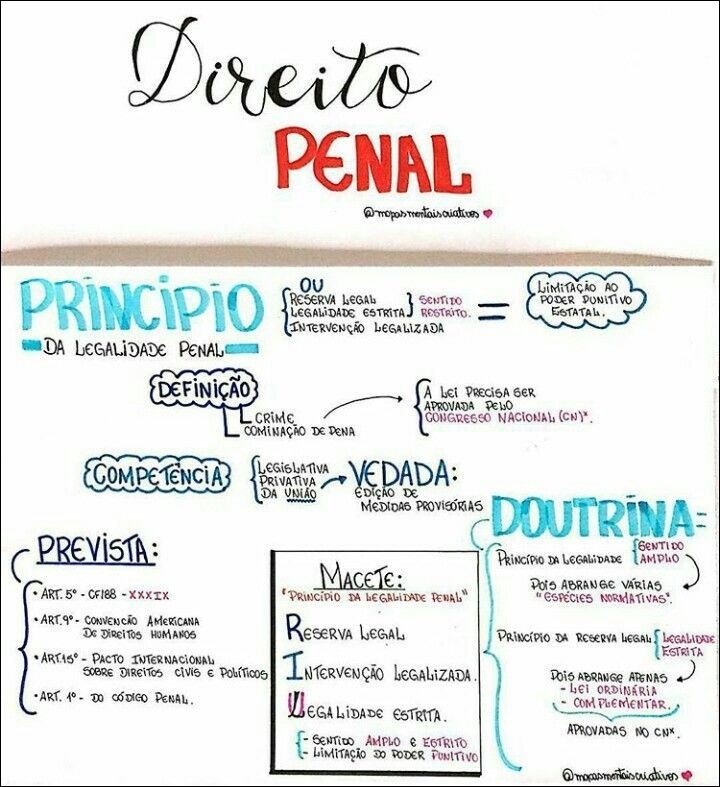 Direito
PENAL
@mapasmentaiscriativos
PRINCÍPIO
DA LEGALIDADE PENAL
OU
RESERVA LEGAL
LEGALIDADE ESTRITA
INTERVENÇÃO LEGALIZADA
SENTIDO
RESTRITO.
=
LIMITAÇÃO AO
PODER PUNITIVO
ESTATAL.
DEFINIÇÃO
CRIME
COMINAÇÃO DE PENA
A LEI PRECISA SER
APROVADA PELO
CONGRESSO NACIONAL (CN)*.
COMPETÊNCIA
LEGISLATIVA
PRIVATIVA
DA UNIÃO
VEDADA:
EDIÇÃO DE
MEDIDAS PROVISÓRIAS
PREVISTA:
• ART. 5º - CF/88 - XXXIX
• ART. 9º - CONVENÇÃO AMERICANA
DE DIREITOS HUMANOS
• ART. 15º - PACTO INTERNACIONAL
SOBRE DIREITOS CIVIS E POLÍTICOS
• ART. 1º - DO CÓDIGO PENAL.
MACETE:
"PRINCÍPIO DA LEGALIDADE PENAL"
RESERVA LEGAL
INTERVENÇÃO LEGALIZADA.
LEGALIDADE ESTRITA.
- SENTIDO AMPLO E ESTRITO
- LIMITAÇÃO DO PODER PUNITIVO
DOUTRINA=
PRINCÍPIO DA LEGALIDADE
SENTIDO
AMPLO
POIS ABRANGE VÁRIAS
"ESPÉCIES NORMATIVAS".
PRINCÍPIO DA RESERVA LEGAL
LEGALIDADE
ESTRITA
POIS ABRANGE APENAS
- LEI ORDINÁRIA
- COMPLEMENTAR.
APROVADAS NO CN*.
@mapasmentaiscriativos